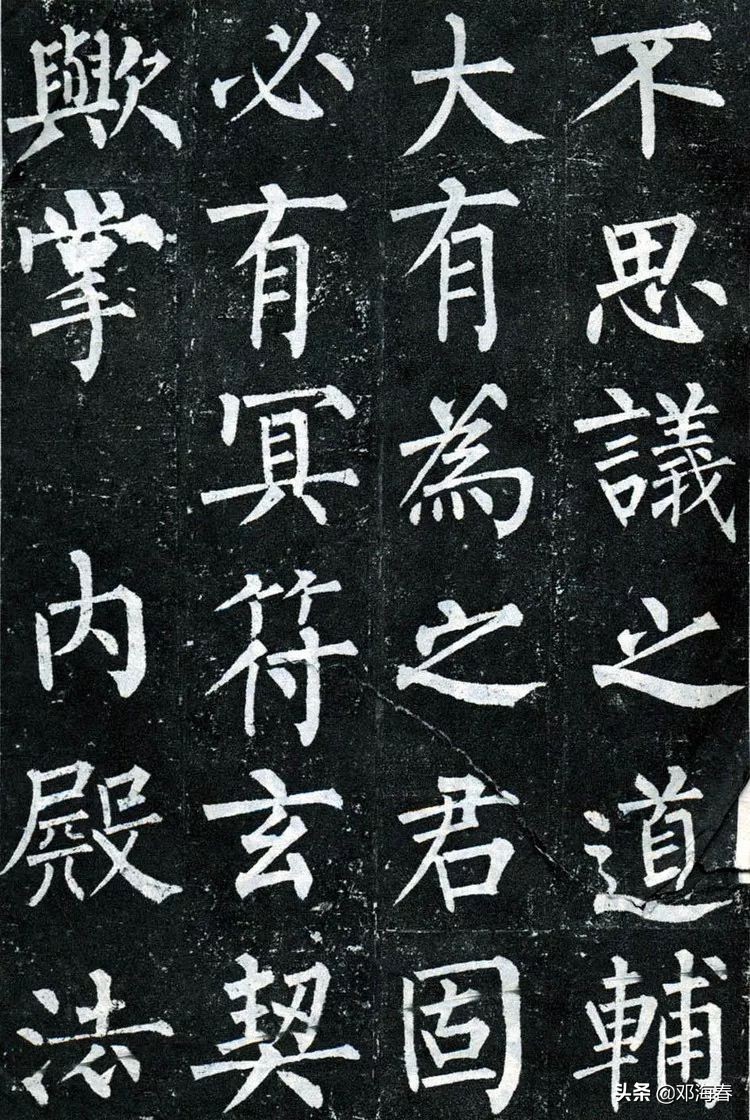 不思議之道輔
大有為之君固
必有冥符玄契
歟掌 内殿法
头条 @邓海春